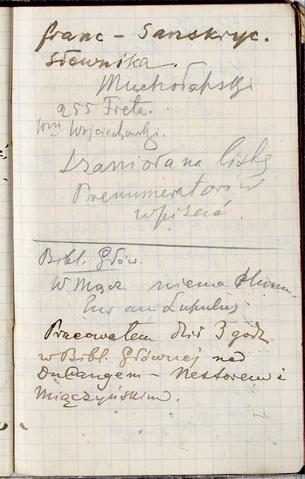 franc – Sanskryc.
Słownika.
Muchołapski
255 Freta.
przy Wojciechowski.
Szaniora na listę
Prenumeratorów
wpisać.
Bibl. Głów.
W Mgaz niema
Lupulus
Pracowałem dziś 3 godz
w Bibl. Głównej nad
DuCangem – Nestorem i
Miączyńskim.